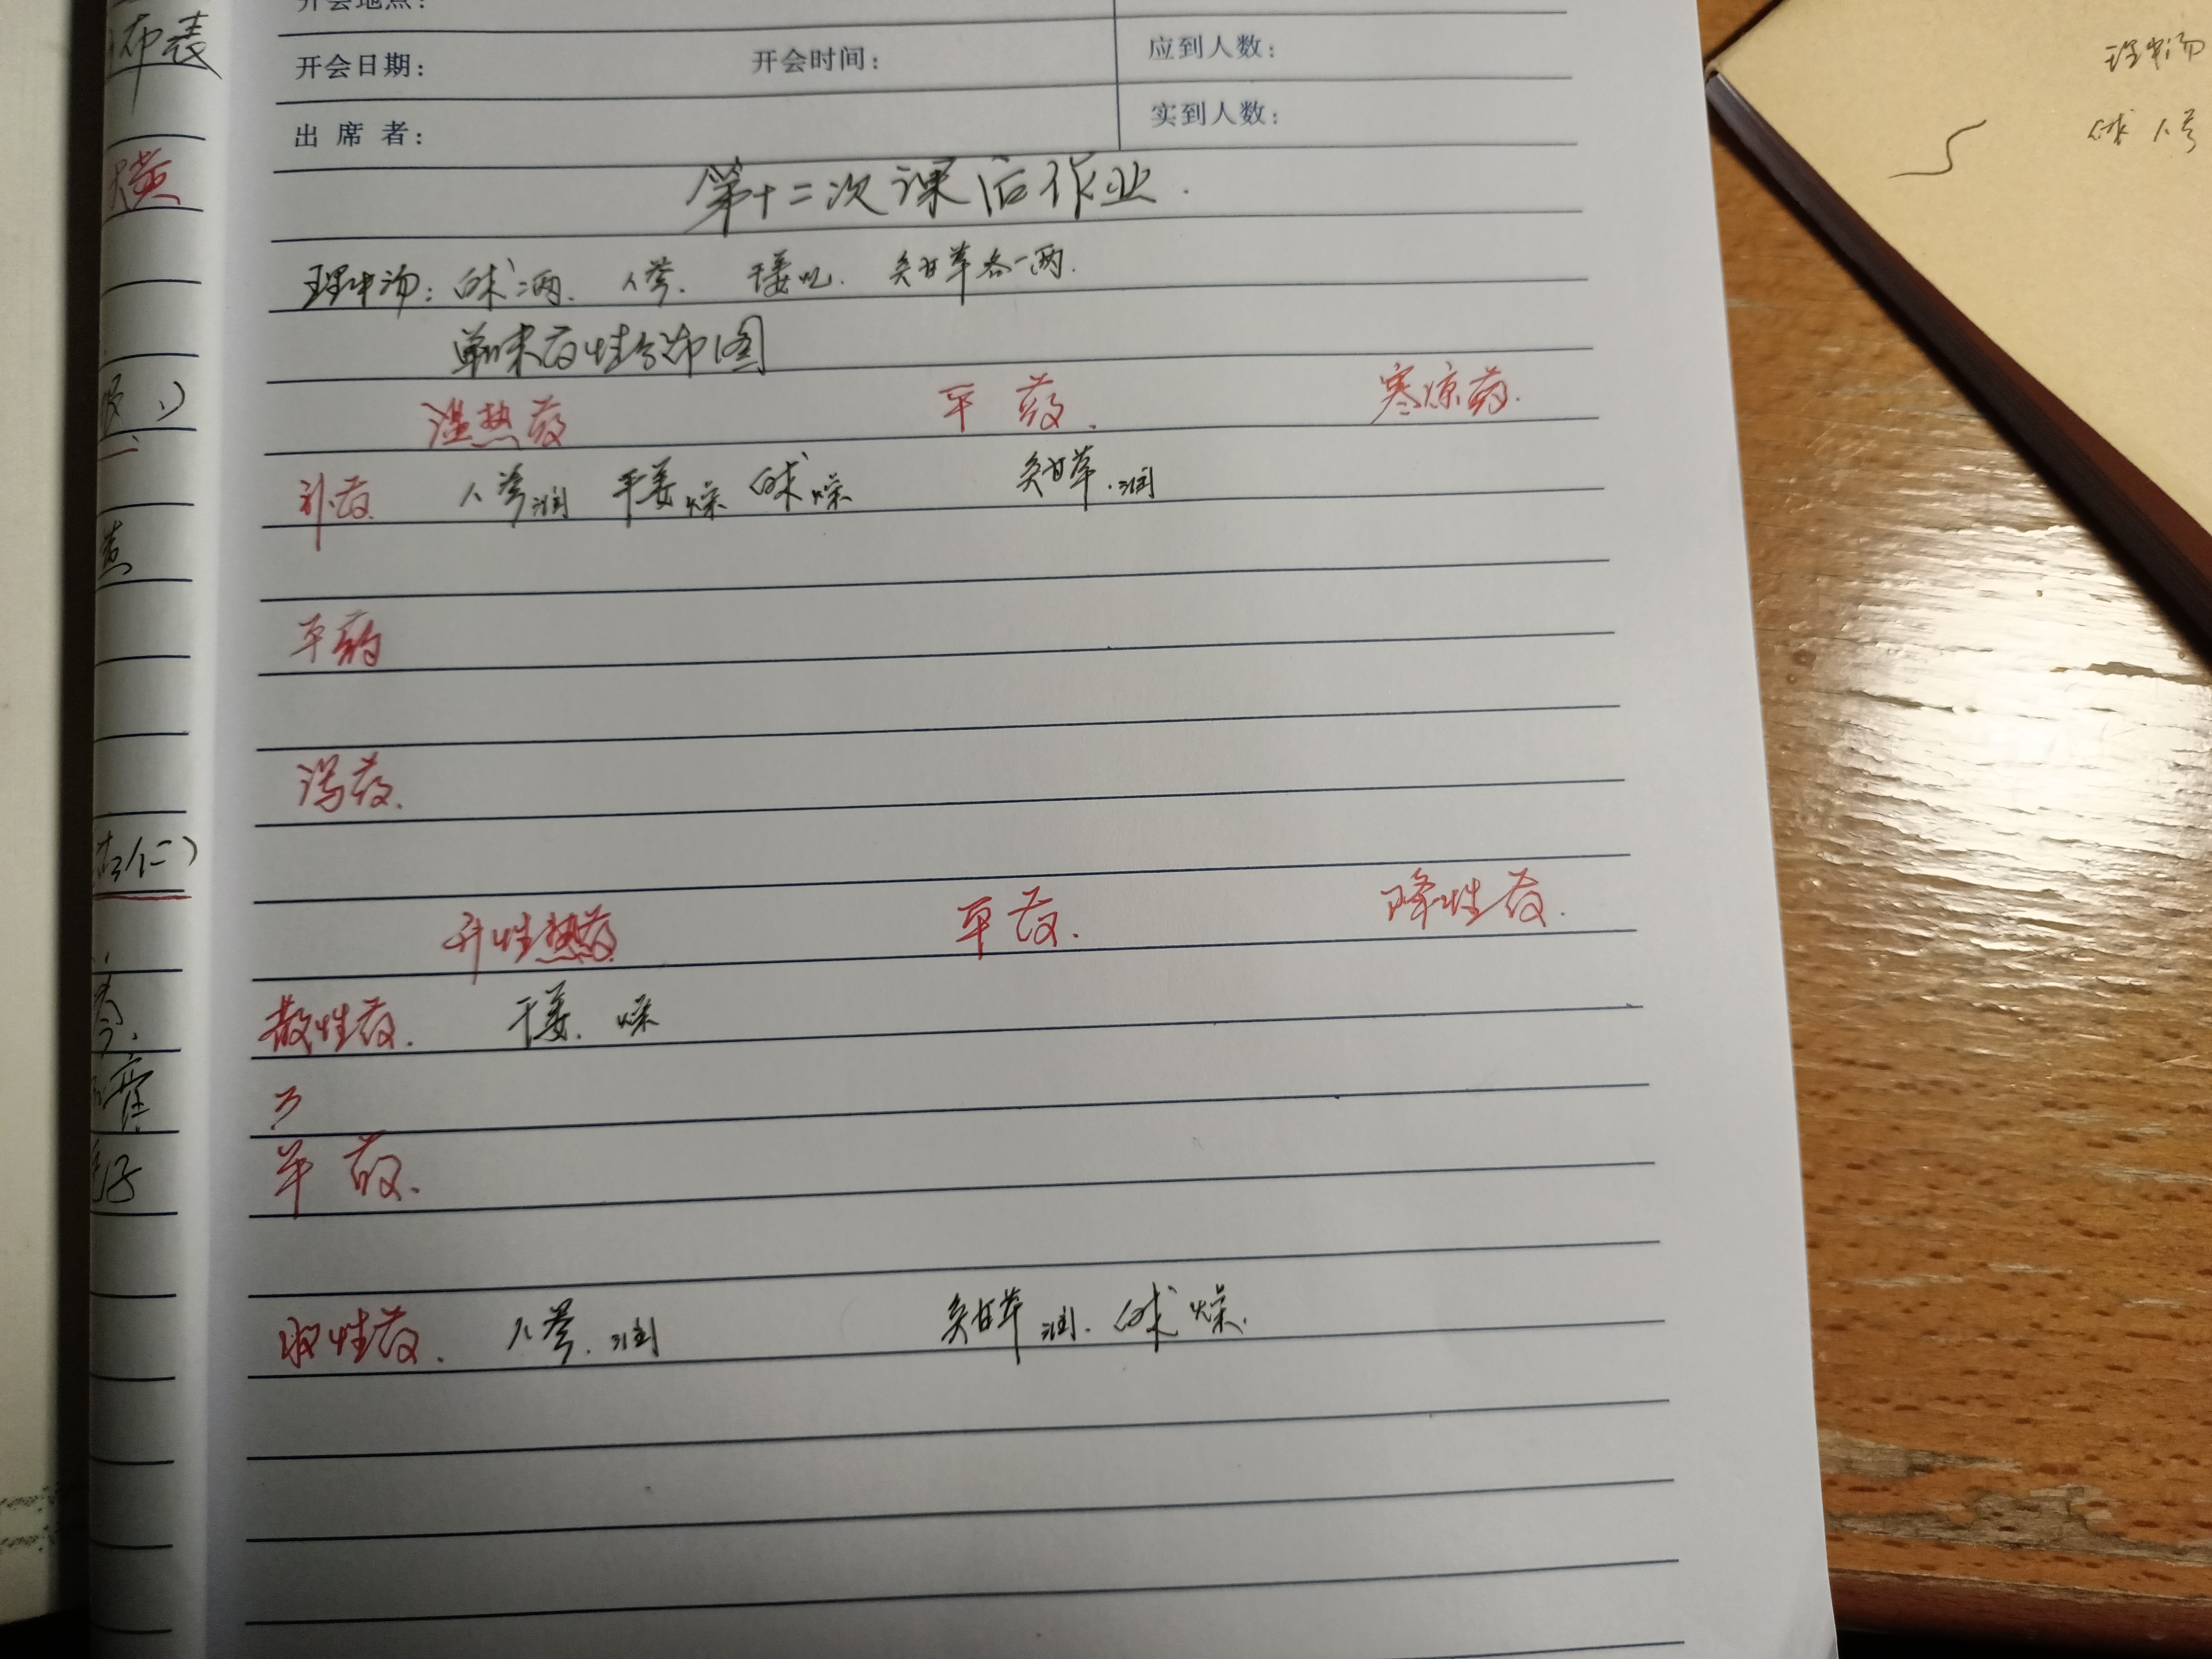 开会地点：
开会日期： 开会时间： 应到人数：
出席者： 实到人数：
第十二次课后作业.
理中汤：白术二两. 人参. 干姜 炙甘草各一两.
单味药性分布图
温热药 平药. 寒凉药.
补药 人参润 干姜燥 白术燥 炙甘草.润
平药
泻药.
升性热药 平药. 降性药.
散性药. 干姜. 燥
平药.
收性药. 人参.润 炙甘草润. 白术燥.
布表
黄
理中汤
白术 人参